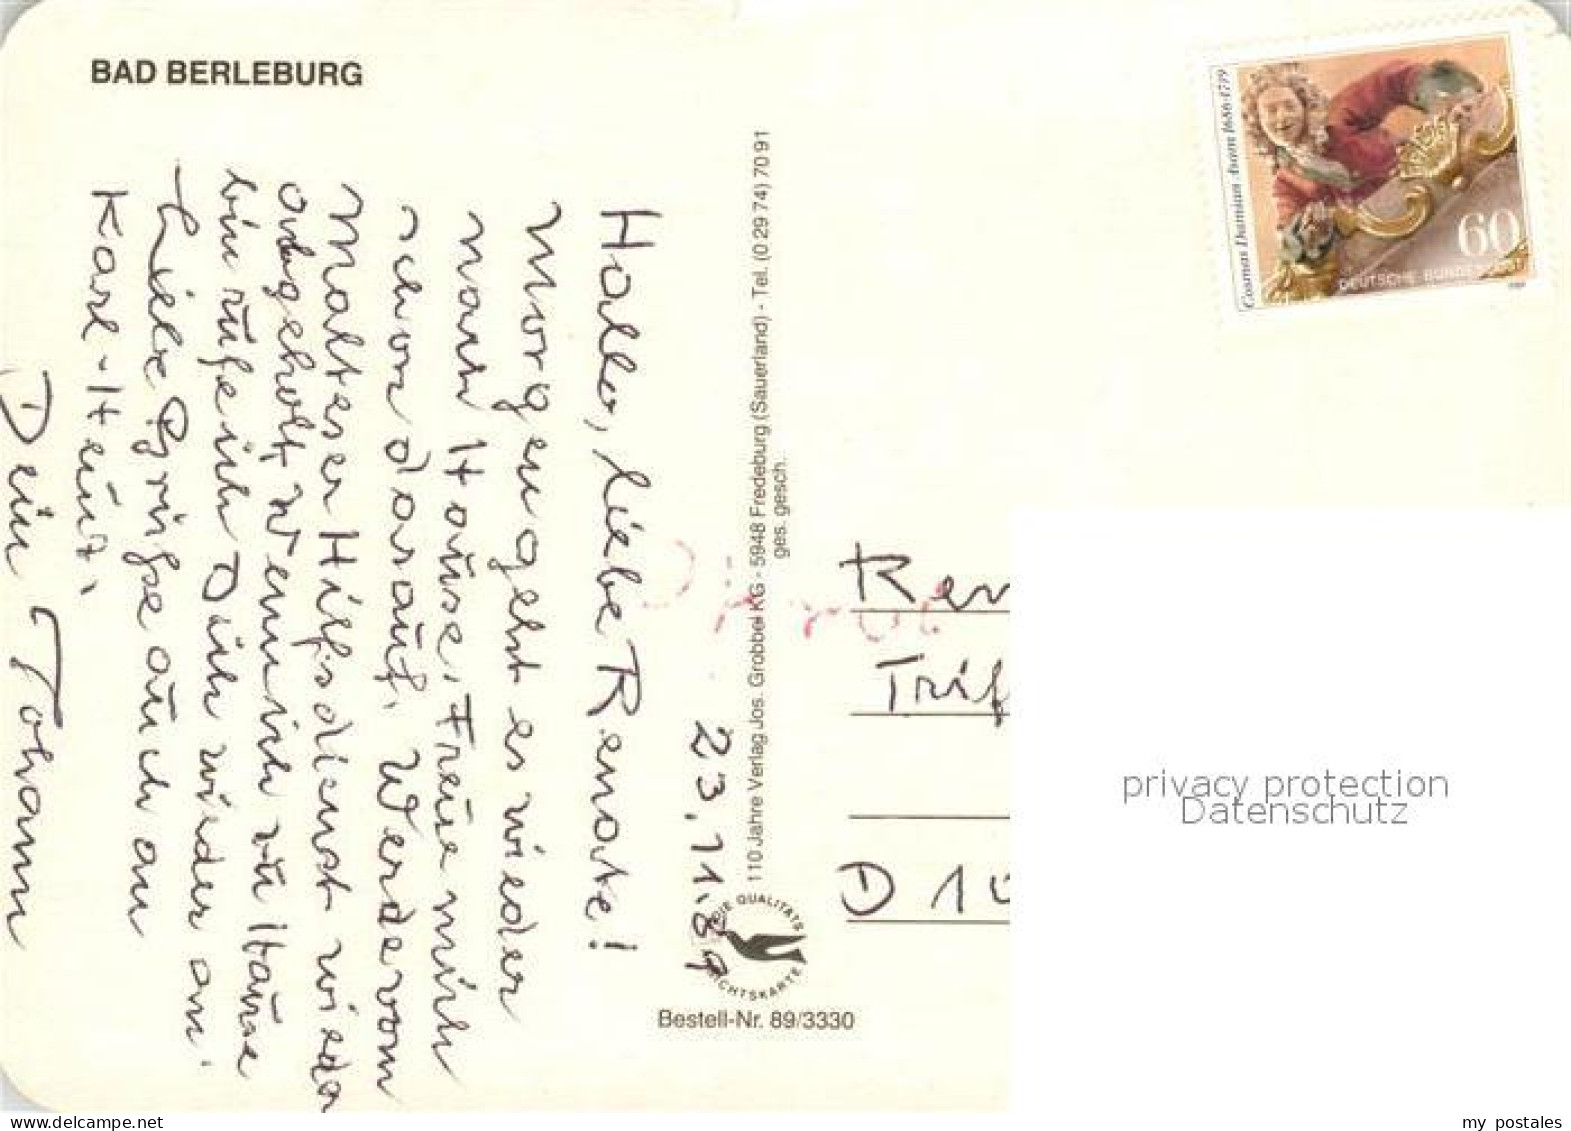 BAD BERLEBURG
23.11.89
Hallo, liebe Renate!
Morgen geht es wieder
nach Hause. Freue mich
schon darauf. Werde vom
Malteser Hilfsdienst wieder
abgeholt. Wenn ich zu Hause
bin rufe ich Dich wieder an.
Liebe Grüße auch an
Karl-Heinz.
Dein Johann
110 Jahre Verlag Jos. Grobbel KG - 5948 Fredeburg (Sauerland) - Tel. (0 29 74) 70 91
ges. gesch.
DIE QUALITÄTS
ANSICHTSKARTE
Bestell-Nr. 89/3330
Cosmas Damian Asam 1686-1739
60
DEUTSCHE BUNDESPOST
Ren
Trif
D 10
privacy protection
Datenschutz
www.delcampe.net
my_postales